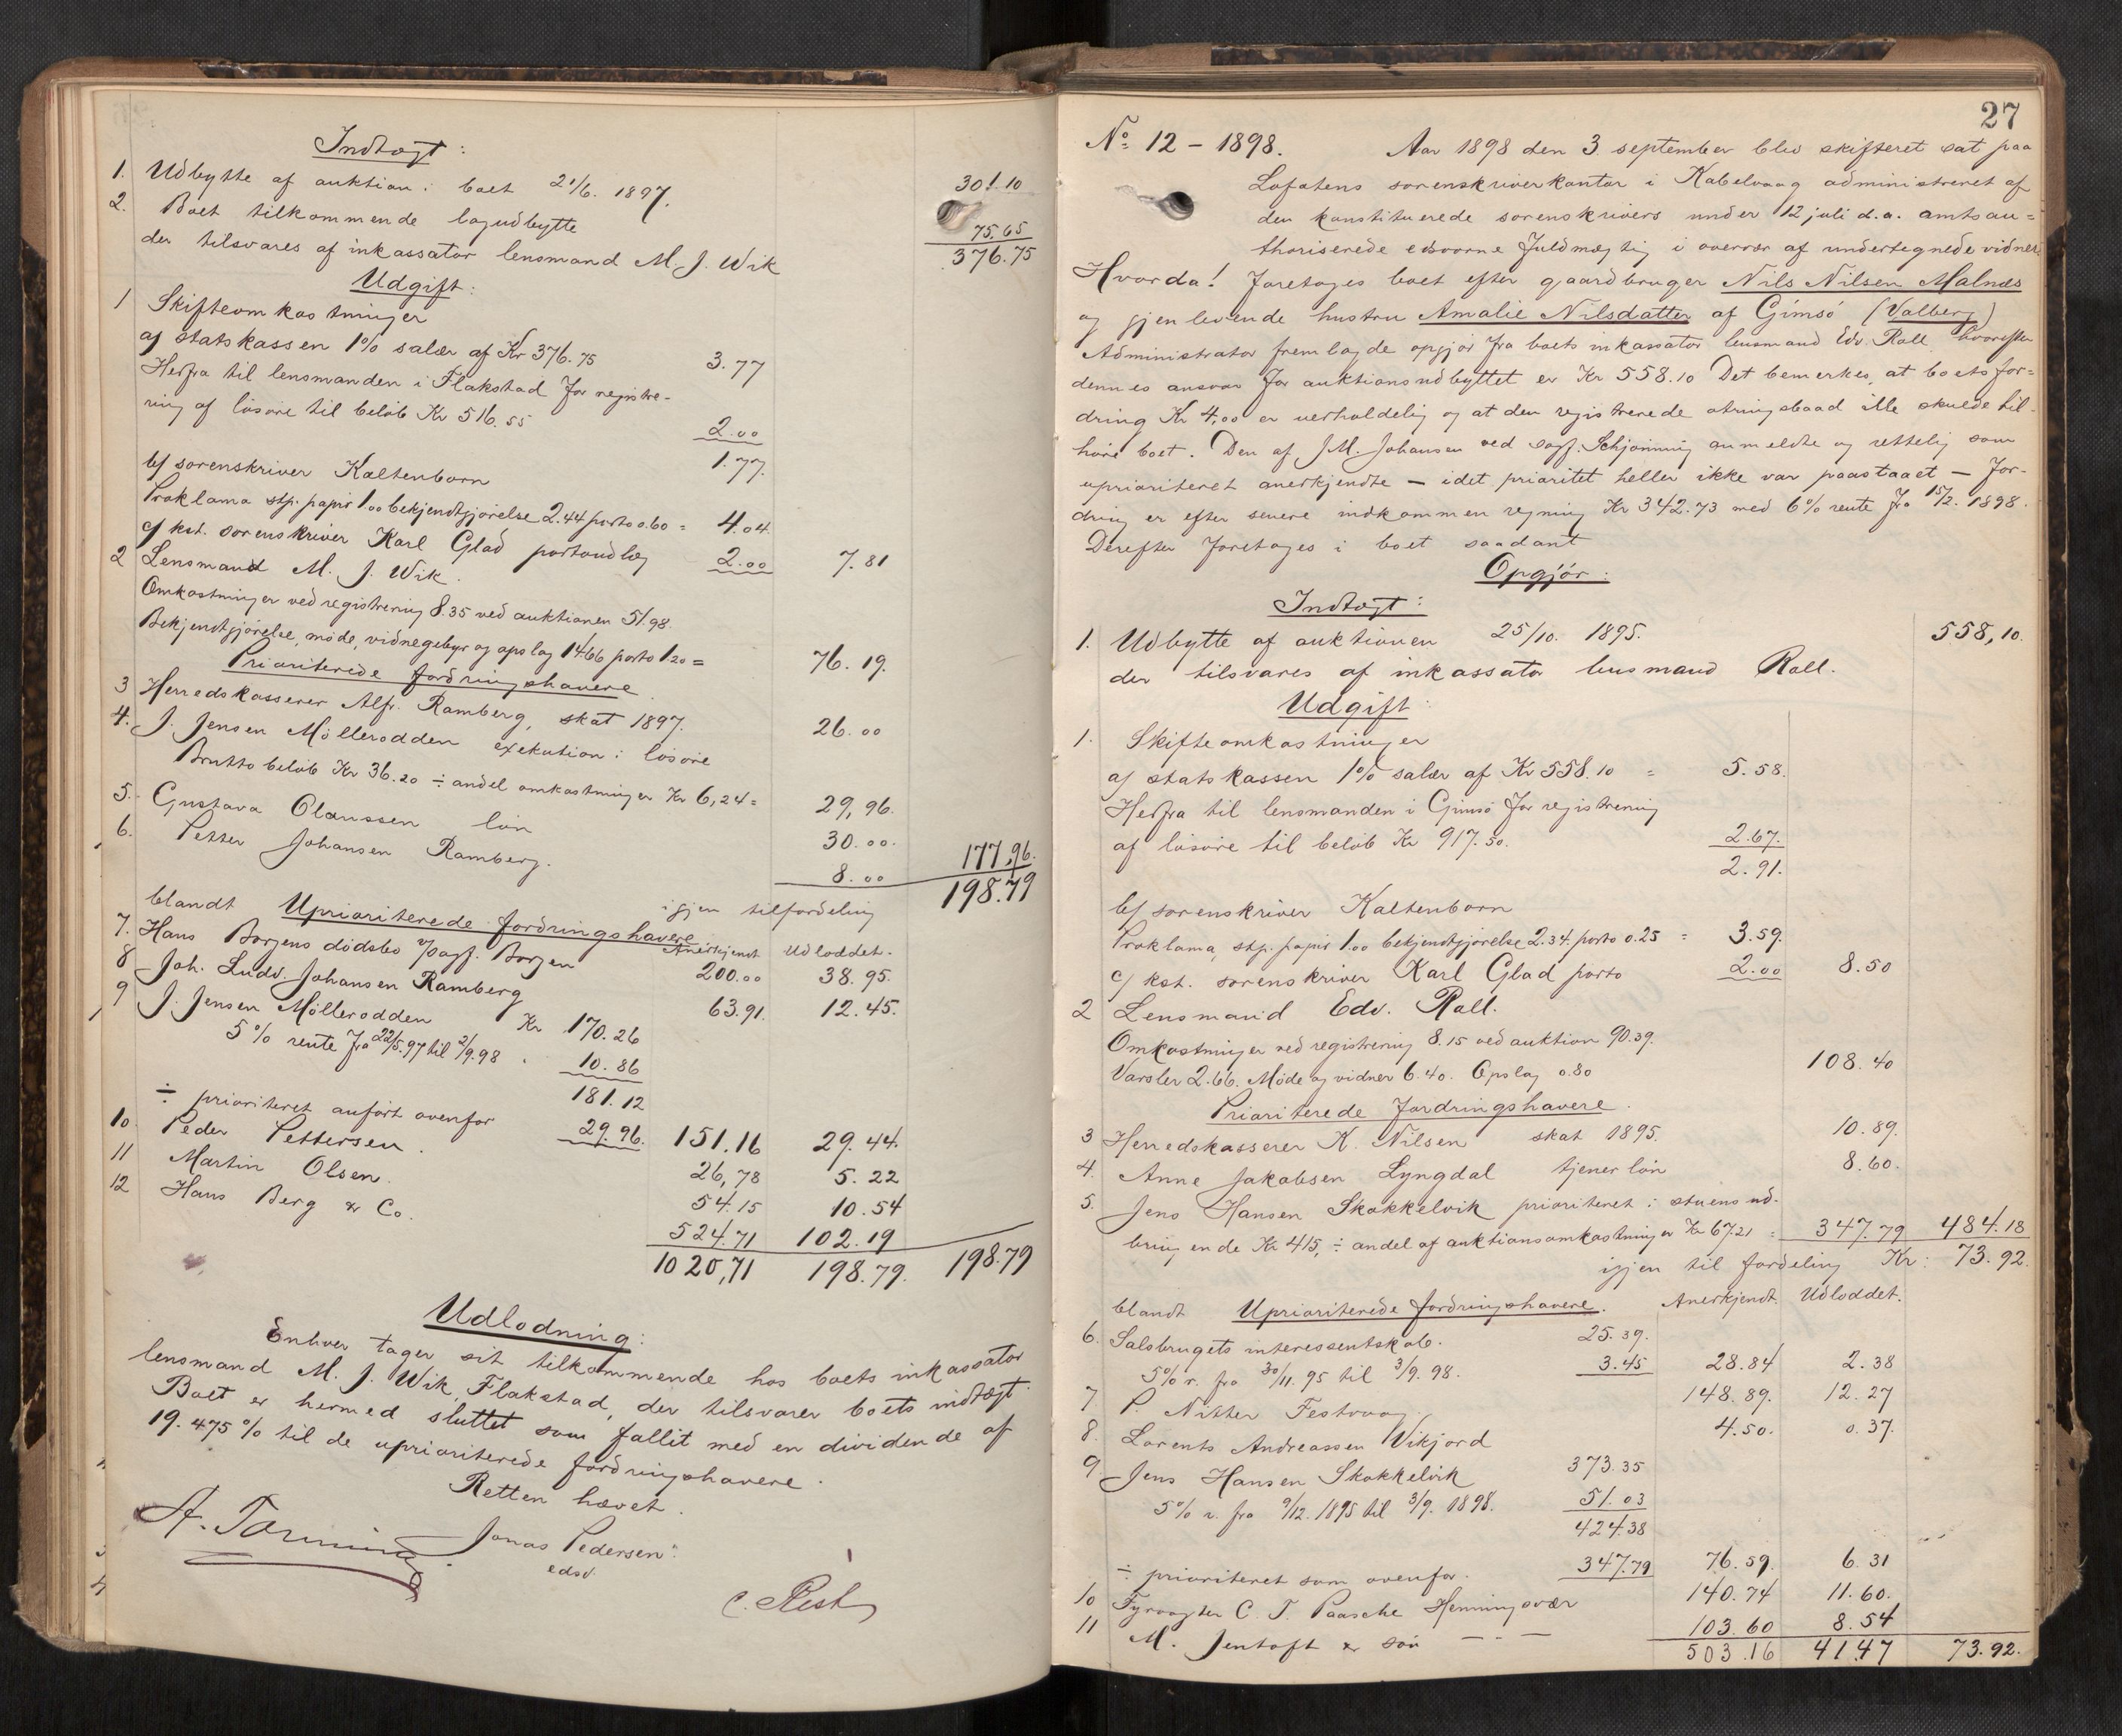 Indtægt:
1. Udbytte af auktion i boet 21/6. 1897. 301.10
2. Boet tilkommende lagudbytte 75.65
der tilsvares af inkassator lensmand M. J. Wik 376.75
Udgift:
1 Skifteomkostninger
a/ statskassen 1% salær af Kr 376.75 3.77
Herfra til lensmanden i Flakstad for registre-
ring af løsøre til beløb Kr 516.55 2.00
1.77.
b/ sorenskriver Kaltenborn
Proklama stp. papir 1.00 bekjendtgjørelse 2.44 porto 0.60 = 4.04
c/ kst. sorenskriver Karl Glad portoudlæg 2.00 7.81
2 Lensmand M. J. Wik.
Omkostninger ved registrering 8.35 ved auktionen 51.98.
Bekjendtgjørelse, møde, vidnegebyr og opslag 14.66 porto 1.20 = 76.19.
Prioriterede fordringshavere.
3 Herredskasserer Alfr. Ramberg, skat 1897. 26.00
4. J. Jensen Møllerodden exekution i løsøre
Brutto beløb Kr 36.20 ÷ andel omkostninger Kr 6,24 = 29,96.
5. Gustava Olaussen løn 30.00.
6. Petter Johansen Ramberg. 8.00 177,96.
igjen tilfordeling 198.79
blandt Uprioriterede fordringshavere Anerkjendt Udloddet.
7. Hans Borgens dødsbo v/sagf. Borgen 200.00 38.95.
8 Joh. Ludv. Johansen Ramberg 63.91. 12.45.
9 J. Jensen Møllerodden Kr 170.26
5% rente fra 22/5.97 til 2/9.98 10.86
181.12
÷ prioriteret anført ovenfor 29.96. 151.16 29.44.
10 Peder Pettersen. 26,78 5.22
11 Martin Olsen. 54.15 10.54
12 Hans Berg & Co. 524.71 102.19
1020,71 198.79. 198.79
Udlodning:
Enhver tager sit tilkommende hos boets inkassator
lensmand M. J. Wik, Flakstad, der tilsvarer boets indtægt.
Boet er hermed sluttet som fallit med en dividende af
19.475% til de uprioriterede fordringshavere.
Retten hævet.
Jonas Pedersen
edsv.
27
No: 12 - 1898. Aar 1898 den 3 september blev skifteret sat paa
Lofotens sorenskriverkontor i Kabelvaag administreret af
den konstituerede sorenskrivers under 12 juli d.a. amtsau=
thoriserede edsvorne fuldmægtig i overvær af undertegnede vidner.
Hvorda! Foretoges boet efter gaardbruger Nils Nilsen Malnæs
og gjenlevende hustru Amalie Nilsdatter af Gimsø (Valberg)
Administrator fremlagde opgjør fra boets inkassator lensmand Edv. Rall. hvorefter
dennes ansvar for auktionsudbyttet er Kr 558.10 Det bemerkes, at boets for=
dring Kr 4,00 er uerholdelig og at den registrerede otringsbaad ikke skulde til-
høre boet. Den af J.M. Johansen ved sagf. Schjønning anmeldte og rettelig som
uprioriteret anerkjendte - idet prioritet heller ikke var paastaaet - for-
dring er efter senere indkommen regning Kr 342.73 med 6% rente fra 15/2. 1898.
Derefter foretoges i boet saadant
Opgjør:
Indtægt:
1. Udbytte af auktionen 25/10. 1895. 558,10.
der tilsvares af inkassator lensmand Rall.
Udgift:
1. Skifteomkostninger
a/ statskassen 1% salær af Kr 558.10 = 5.58.
Herfra til lensmanden i Gimsø for registrering
af løsøre til beløb Kr 917.50. 2.67.
2.91.
b/ sorenskriver Kaltenborn
Proklama, stp. papir 1.00 bekjendtgjørelse 2.34. porto 0.25 = 3.59.
c/ kst. sorenskriver Karl Glad porto 2.00 8.50
2 Lensmand Edv. Rall.
Omkostninger ved registrering 8.15 ved auktion 90.39.
Varsler 2.66. Møde og vidner 6.40. Opslag 0.80 108.40
Prioriterede fordringshavere.
3 Herredskasserer K. Nilsen skat 1895. 10.89.
4. Anne Jakobsen Lyngdal tjenerløn 8.60.
5. Jens Hansen Skokkelvik prioriteret i stuens ud-
bringende Kr 415, ÷ andel af auktionsomkostninger Kr 67.21 = 347.79 484.18
igjen til fordeling Kr: 73.92.
blandt Uprioriterede fordringshavere. Anerkjendt. Udloddet.
6. Salsbrugets interessentskab. 25.39.
5% r. fra 30/11.95 til 3/9.98. 3.45 28.84 2.38
7 P Nitter Festvaag 148.89. 12.27
8. Lorents Andreassen Vikjord 4.50. 0.37.
9 Jens Hansen Skokkelvik 373.35
5% r. fra 9/12. 1895 til 3/9. 1898. 51.03
424.38
÷ prioriteret som ovenfor. 347.79 76.59. 6.31
10 Fyrvogter C. T. Paasche Henningsvær 140.74 11.60.
11 M. Jentoft & søn - " - 103.60 8.54
503.16 41.47 73.92.